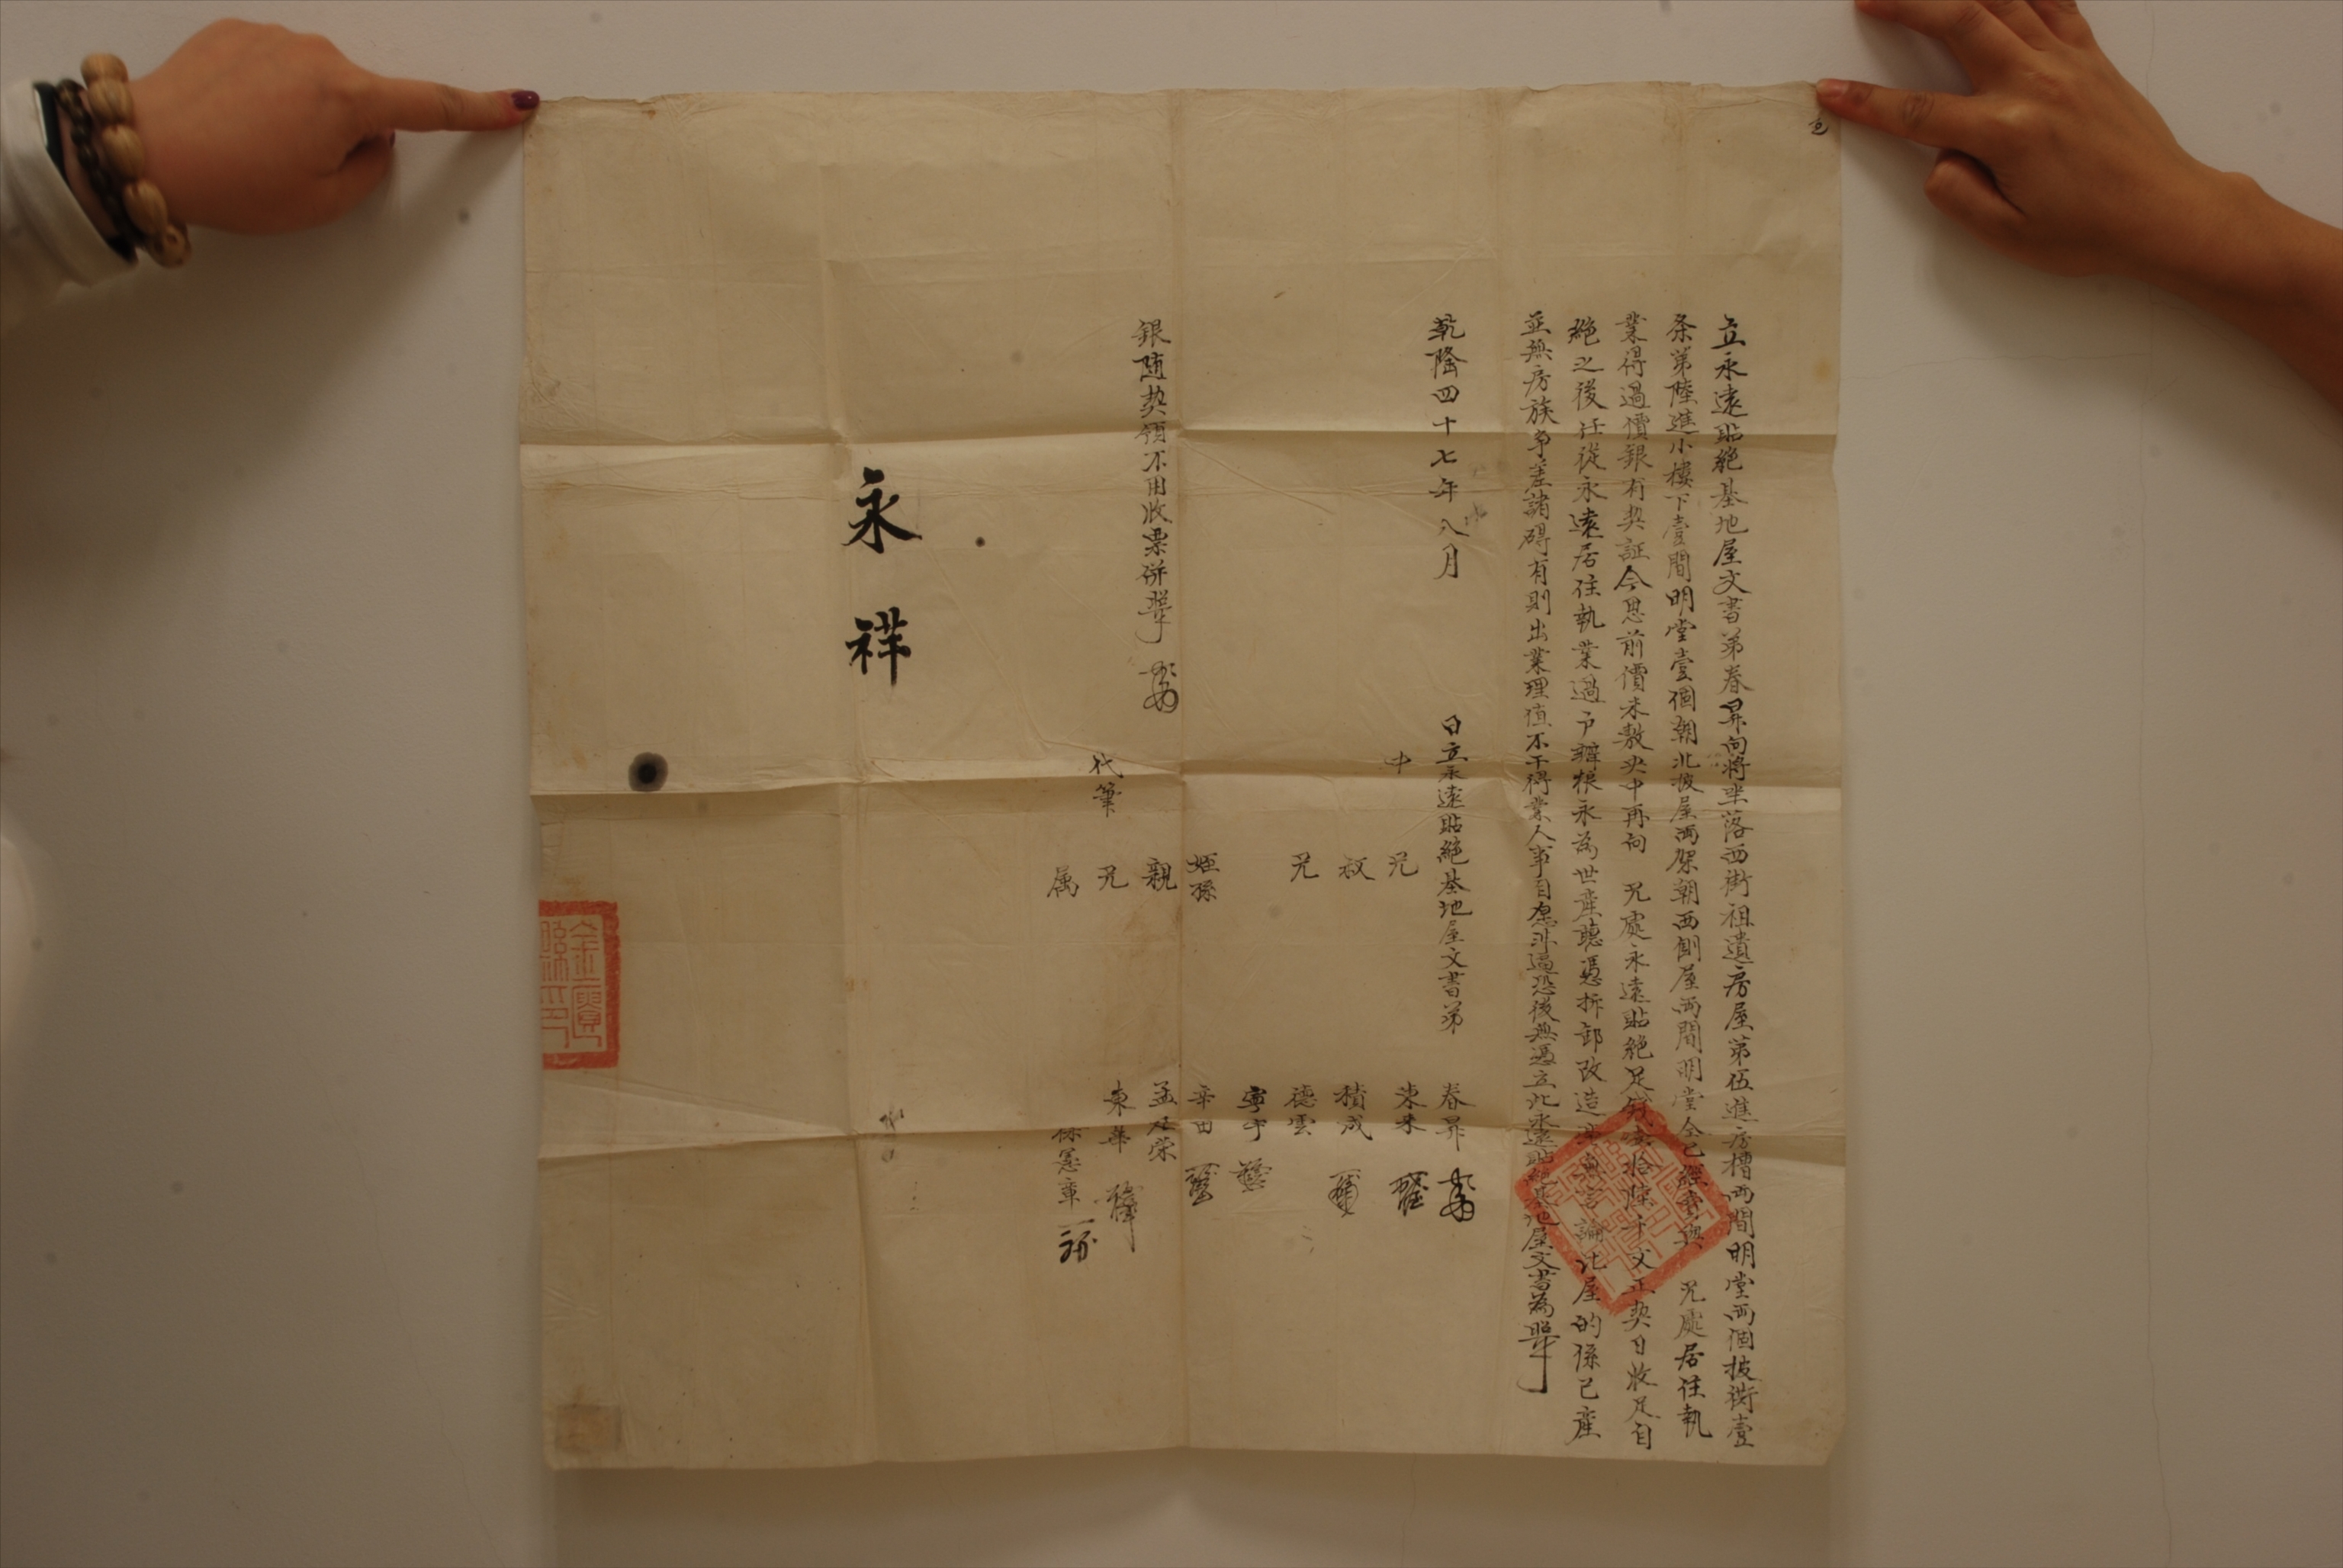 立永遠貼絕基地屋文書弟春昇向將坐落西街祖遺房屋第伍進房槽兩間明堂兩個披衖壹
条第陸進小樓下壹間明堂壹個朝北披屋兩架朝西側屋兩間明堂仝已經賣與 兄處居住執
業得過價銀有契証今思前價未敷央中再向 兄處永遠貼絕足錢 拾陸千文正契日收足自
絕之後任從永遠居住執業過户辦粮永為世產聽憑拆卸改造 論此屋的係己產
並無房族爭差諸碍有則出業理值不干得業人事自愿非逼恐後無憑立此永遠貼絕基地屋文書為照
乾隆四十七年八月 日立永遠貼絕基地屋文書弟 春昇
中 兄 東来
叔 積成
兄 德雲
寧宇
姪孫 辛田
親 孟廷荣
代筆 兄 東華
属 憲章
銀随契領不用收票併照
永祥
金匱縣印